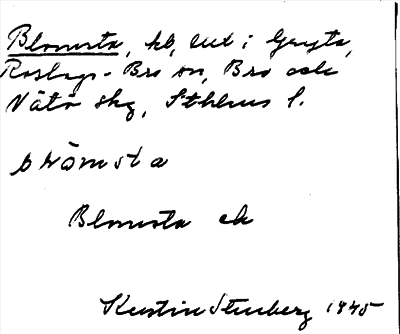 Blomsta, hb, Eed i Gryta,
Roslags-Bro sn, Bro och
Vätö skg, Sthlms l.
blòmsta
Blomsta ek
Kerstin Stenberg 1945